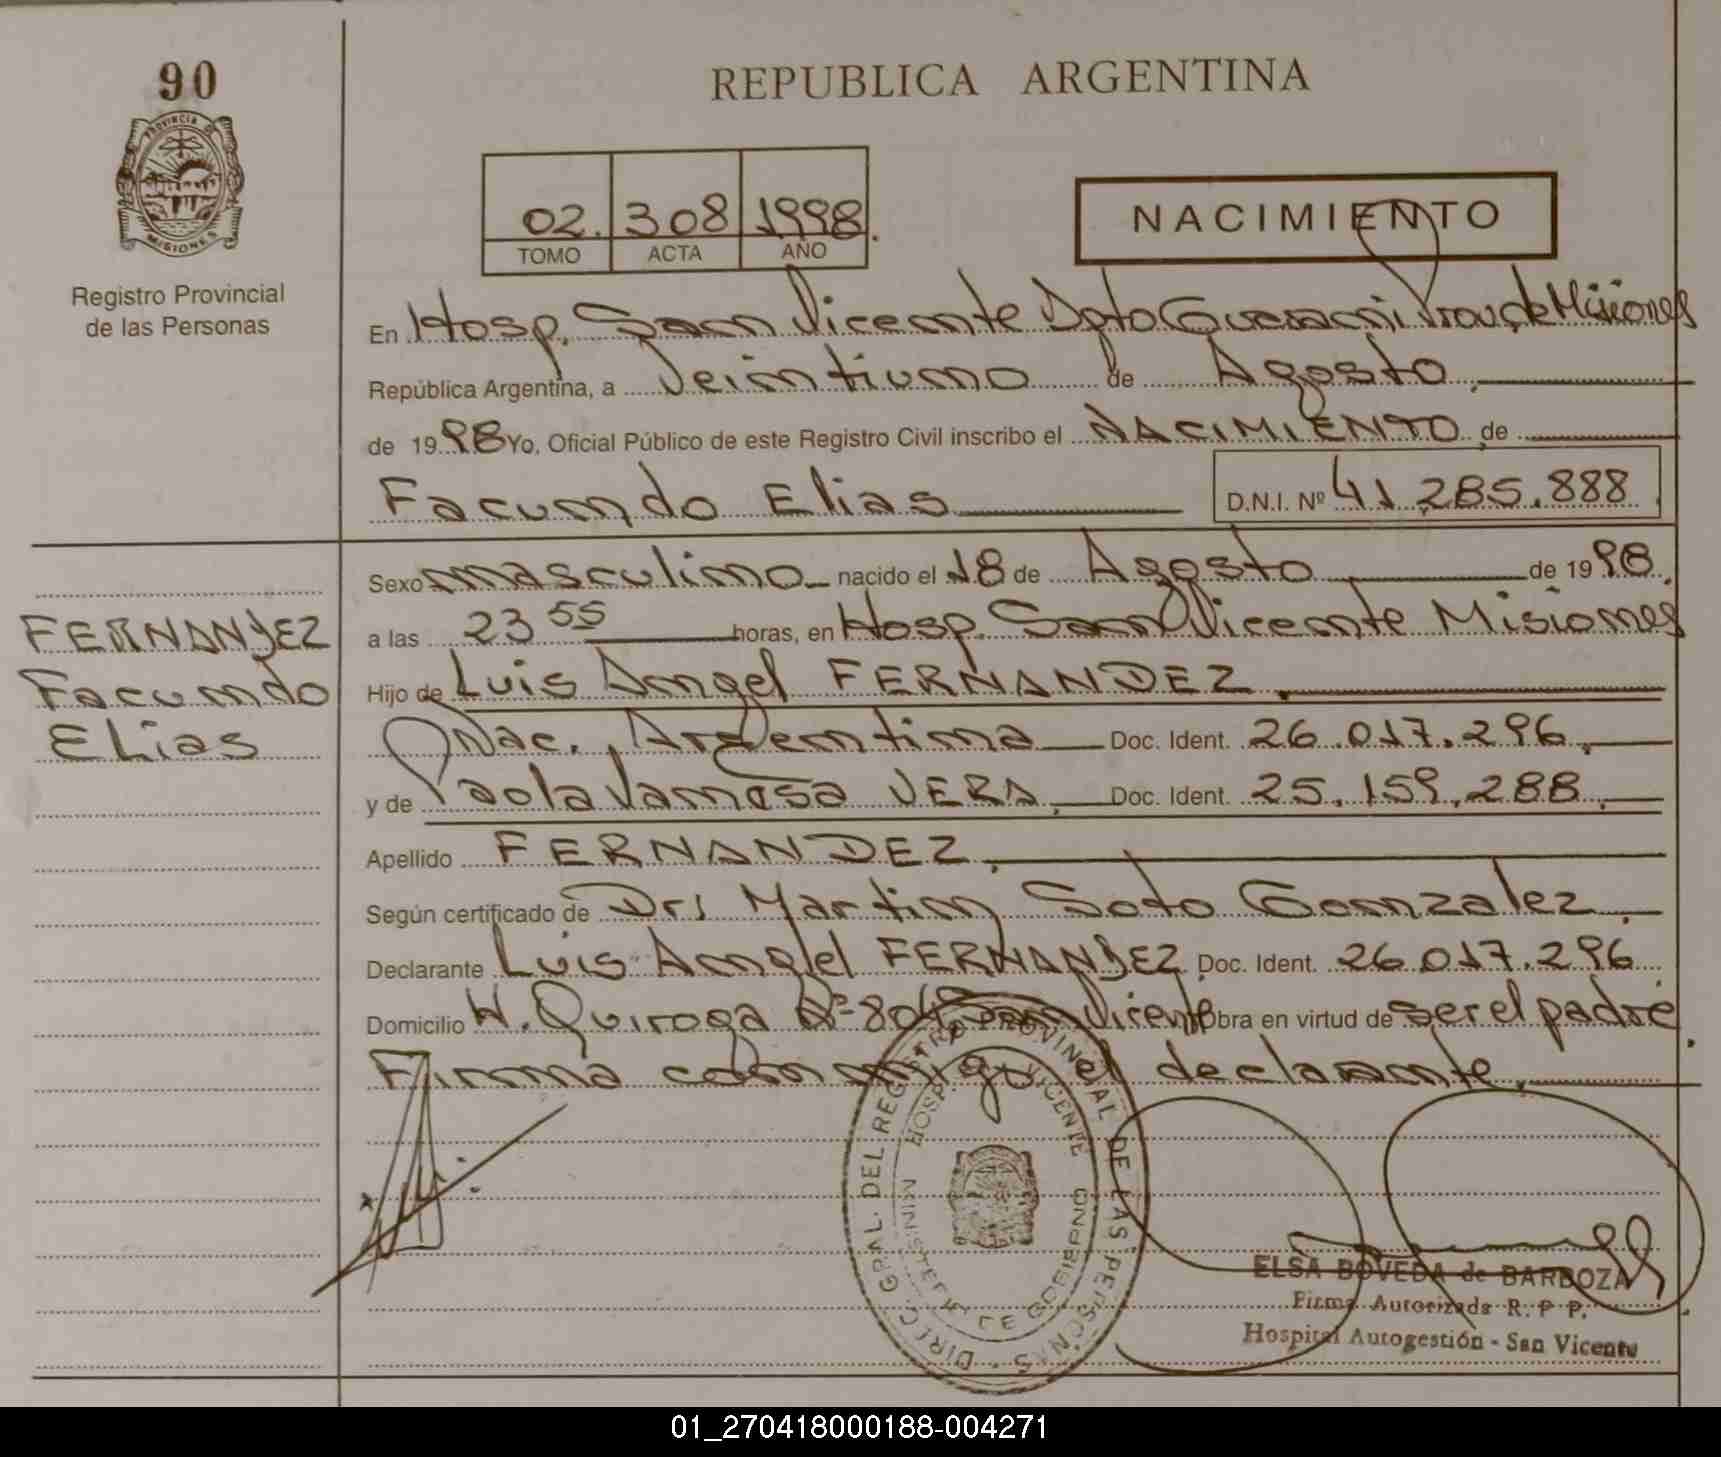 90
PROVINCIA DE
MISIONES
Registro Provincial
de las Personas
REPUBLICA ARGENTINA
02. 308 1998.
TOMO ACTA AÑO
NACIMIENTO
En Hosp. San Vicente Dpto Guarani Prov. de Misiones
República Argentina, a Veintiuno de Agosto
de 1998 Yo, Oficial Público de este Registro Civil inscribo el NACIMIENTO de
Facundo Elias D.N.I. Nº 41.285.888
Sexo masculino nacido el 18 de Agosto de 1998.
a las 23 55 horas, en Hosp. San Vicente Misiones
FERNANDEZ
Facundo
Elias
Hijo de Luis Angel FERNANDEZ.
Nac. Argentina Doc. Ident. 26.017.296.
y de Paola Vanesa VERA. Doc. Ident. 25.159.288.
Apellido FERNANDEZ.
Según certificado de Dr. Martin Soto Gonzalez.
Declarante Luis Angel FERNANDEZ Doc. Ident. 26.017.296
Domicilio H. Quiroga Nº 804 San Vicente Obra en virtud de ser el padre.
Firma conmigo el declarante.
DIREC. GRAL. DEL REGISTRO PROVINCIAL DE LAS PERSONAS
HOSP. VICENTE
MINISTERIO DE GOBIERNO
ELSA BOVEDA de BARBOZA
Firma Autorizada R. P. P.
Hospital Autogestión - San Vicente
01_270418000188-004271